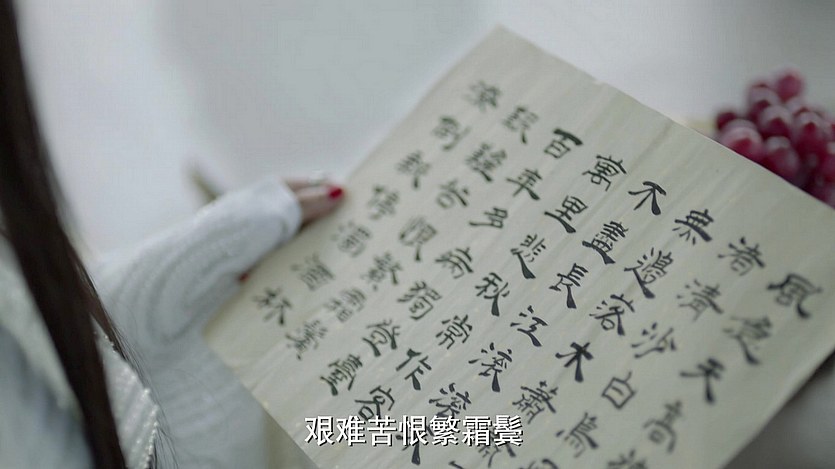 風急天高
渚清沙白鳥
無邊落木蕭蕭
不盡長江滾滾
萬里悲秋常作客
百年多病獨登臺
艱難苦恨繁霜鬢
潦倒新停濁酒杯
艰难苦恨繁霜鬓